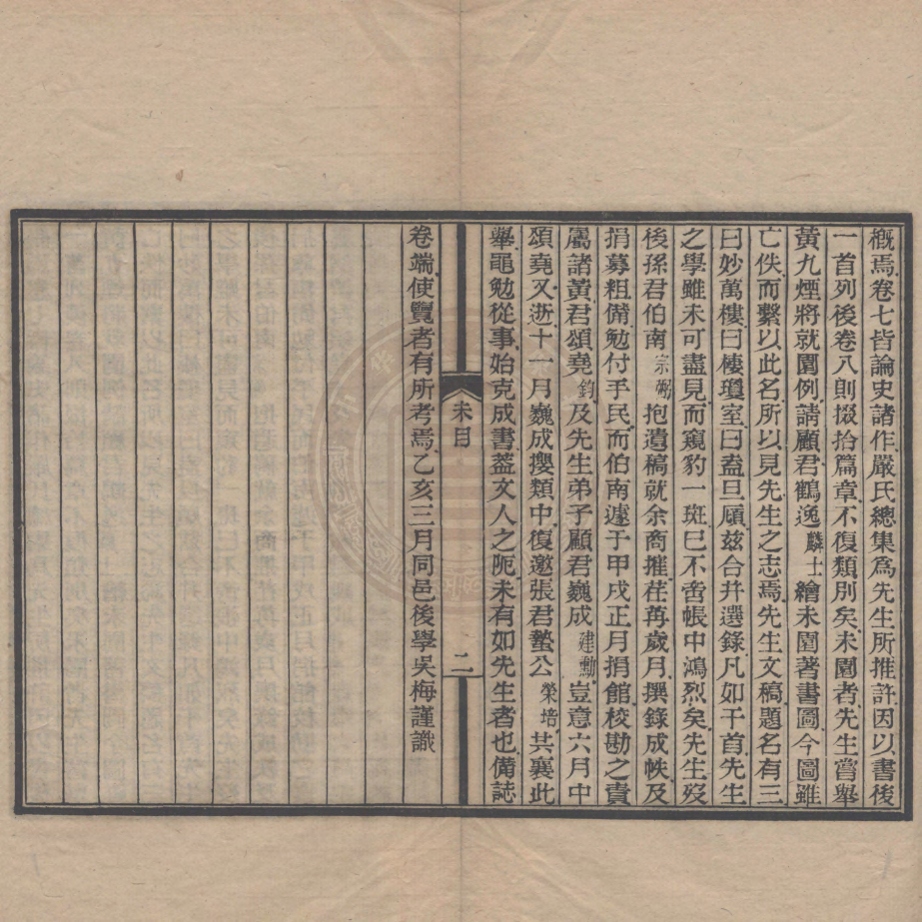 概焉卷七皆論史諸作嚴氏總集爲先生所推許因以書後
一首列後卷八則掇拾篇章不復類別矣未園者先生嘗舉
黃九煙將就園例請顧君鶴逸麟士繪未園著書圖今圖雖
亡佚而繫以此名所以見先生之志焉先生文稿題名有三
曰妙萬樓曰棲瓊室曰盍旦廎茲合幷選錄凡如干首先生
之學雖未可盡見而窺豹一斑已不啻帳中鴻烈矣先生歿
後孫君伯南宗弼抱遺稿就余商推荏苒歲月撰錄成帙及
捐募粗備勉付手民而伯南遽于甲戌正月捐館校勘之責
屬諸黃君頌堯鈞及先生弟子顧君巍成建勳豈意六月中
頌堯又逝十一月巍成攖類中復邀張君蟄公榮培共襄此
舉黽勉從事始克成書蓋文人之阨未有如先生者也備誌
未目
二
卷端使覽者有所考焉乙亥三月同邑後學吳梅謹識